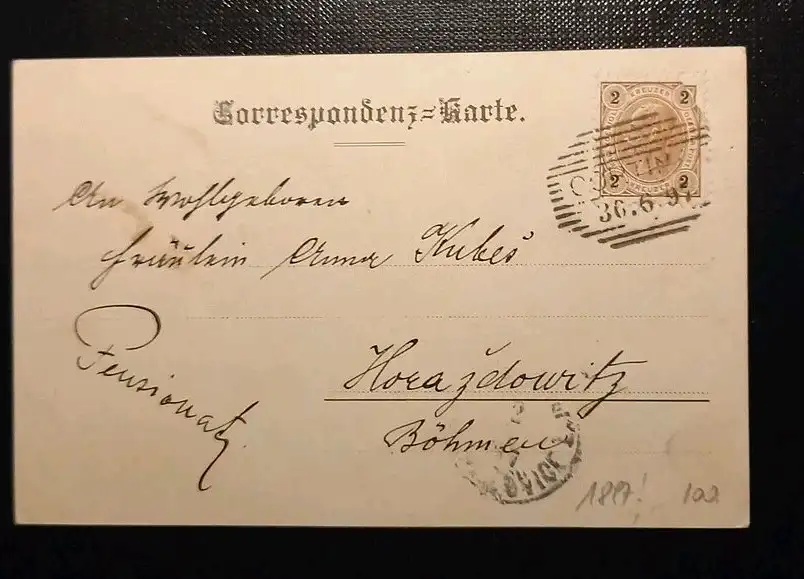 Correspondenz=Karte.
2 KREUZER 2
2 KREUZER 2
30.6.97
An Wohlgeboren
Fräulein Anna Kubeš
Pensionat
Horažďowitz
Böhmen
OVICE
1897! 102